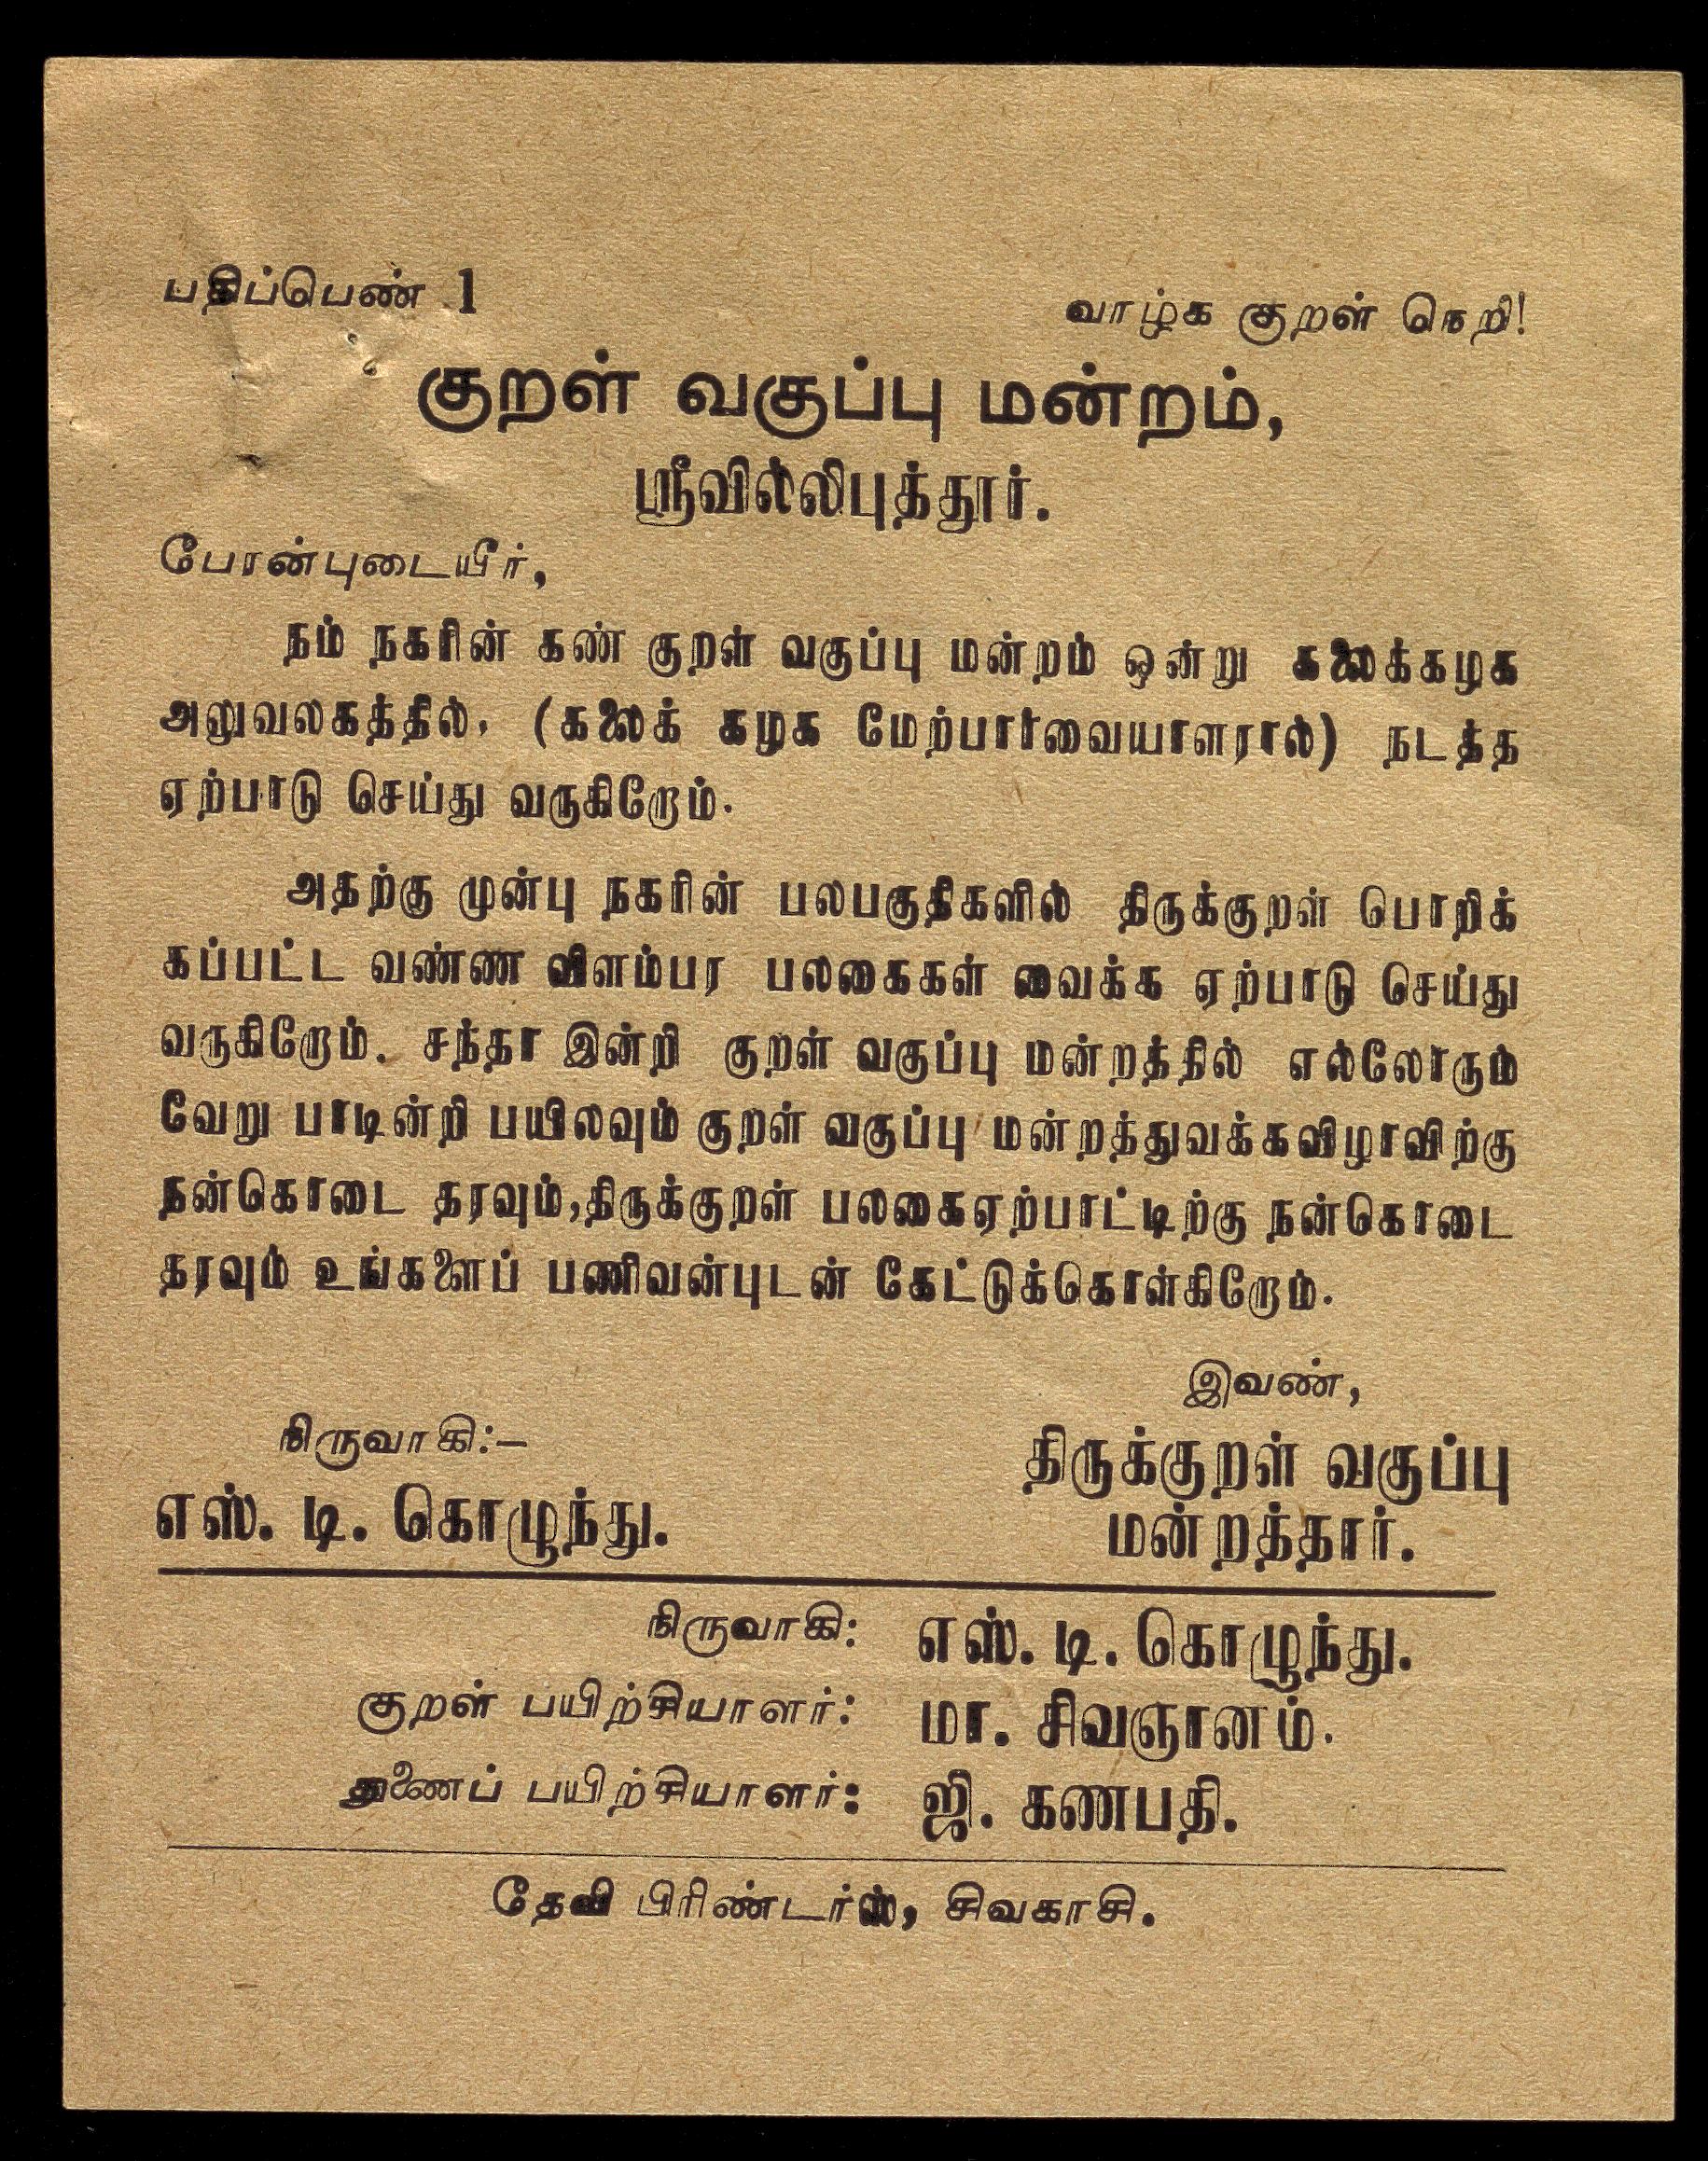 பதிப்பெண் 1
வாழ்க குறள் நெறி!
குறள் வகுப்பு மன்றம்,
ஸ்ரீவில்லிபுத்தூர்.
பேரன்புடையீர்,
நம் நகரின் கண் குறள் வகுப்பு மன்றம் ஒன்று கலைக்கழக
அலுவலகத்தில், (கலைக் கழக மேற்பார்வையாளரால்) நடத்த
ஏற்பாடு செய்து வருகிறோம்.
அதற்கு முன்பு நகரின் பலபகுதிகளில் திருக்குறள் பொறிக்
கப்பட்ட வண்ண விளம்பர பலகைகள் வைக்க ஏற்பாடு செய்து
வருகிறோம். சந்தா இன்றி குறள் வகுப்பு மன்றத்தில் எல்லோரும்
வேறு பாடின்றி பயிலவும் குறள் வகுப்பு மன்றத்துவக்கவிழாவிற்கு
நன்கொடை தரவும்,திருக்குறள் பலகைஏற்பாட்டிற்கு நன்கொடை
தரவும் உங்களைப் பணிவன்புடன் கேட்டுக்கொள்கிறோம்.
இவண்,
திருக்குறள் வகுப்பு
மன்றத்தார்.
நிருவாகி:—
எஸ். டி. கொழுந்து.
நிருவாகி: எஸ். டி. கொழுந்து.
குறள் பயிற்சியாளர்: மா. சிவஞானம்.
துணைப் பயிற்சியாளர்: ஜி. கணபதி.
தேவி பிரிண்டர்ஸ், சிவகாசி.